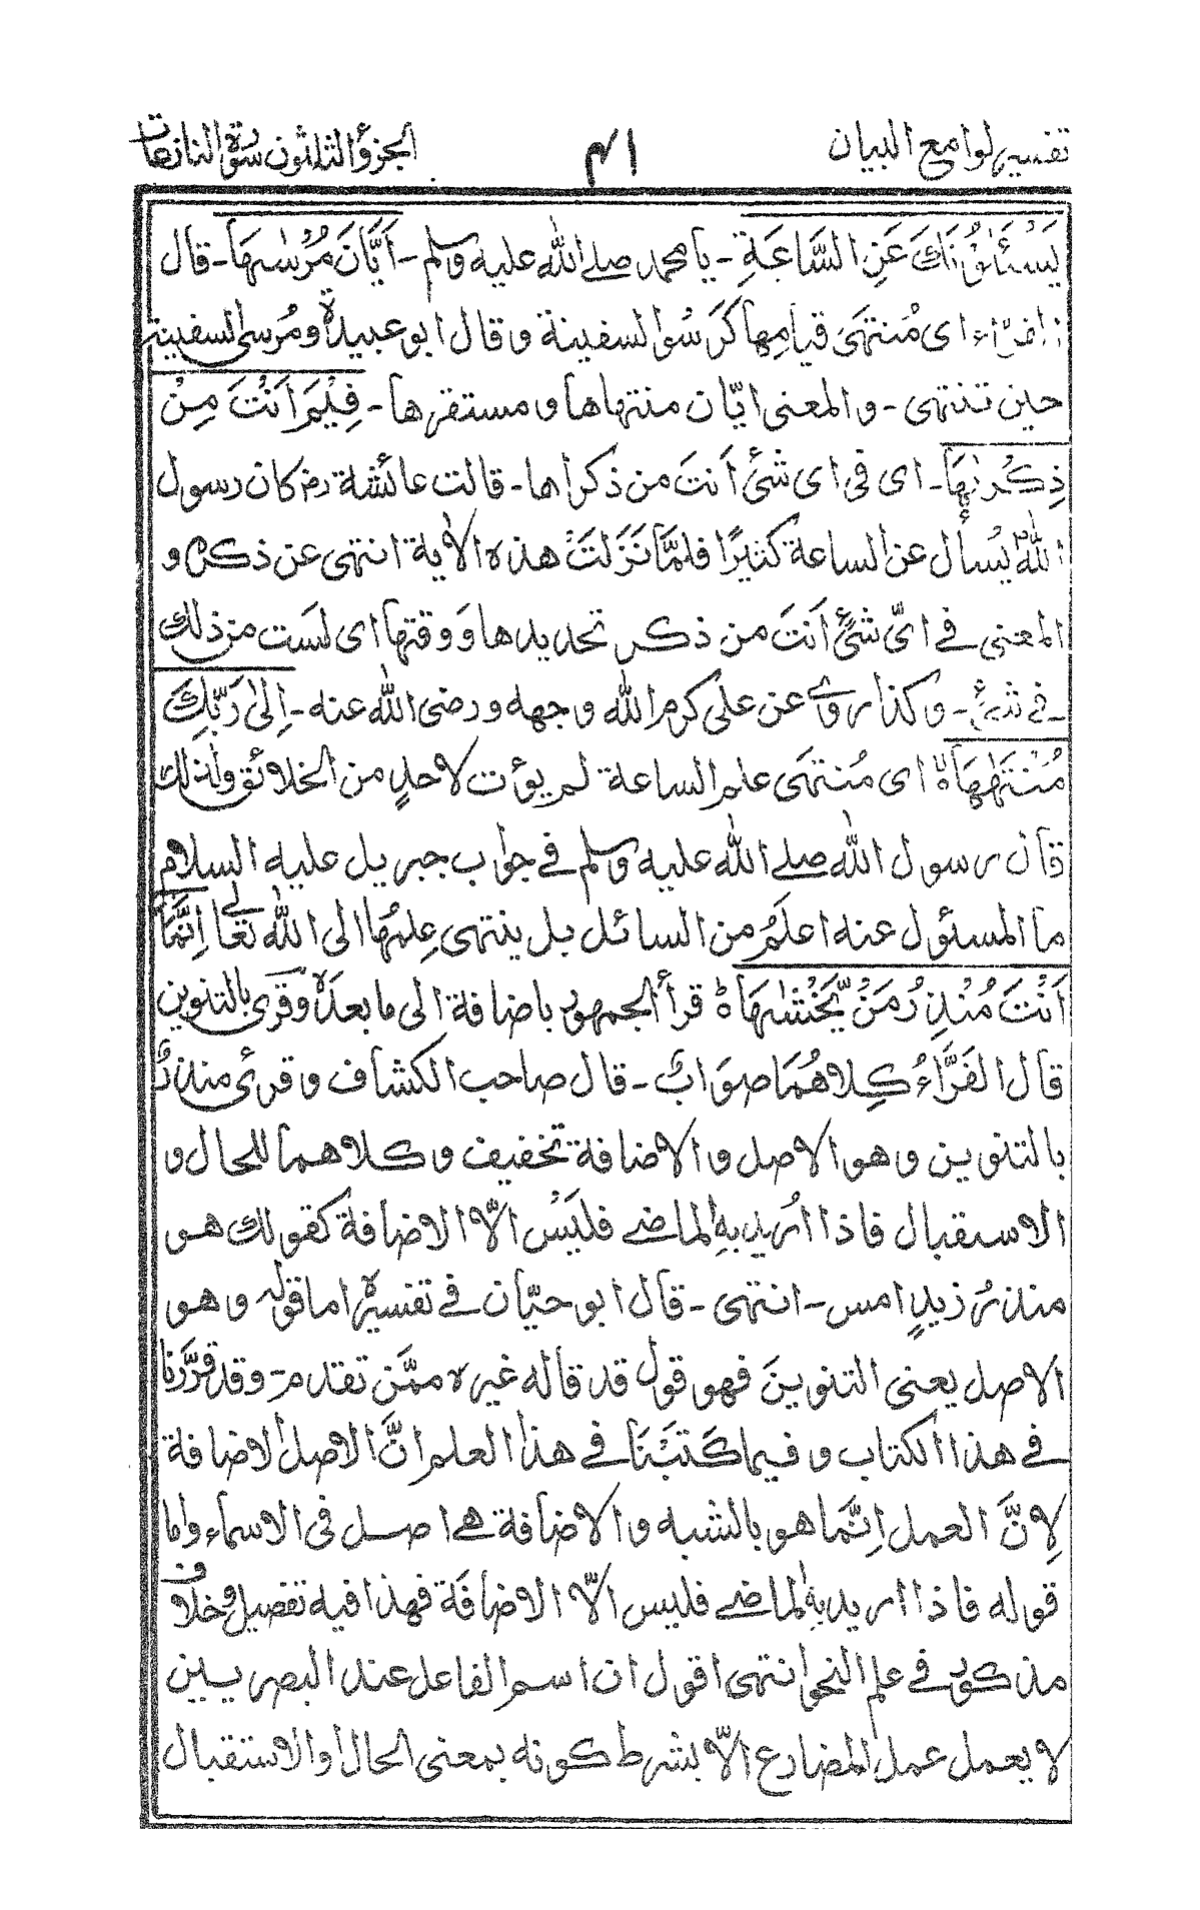 تفسير لوامع البيان ٤١ الجزؤ الثلثون سورة النازعات
يَسْئَلُوْنَكَ عَنِ السَّاعَةِ - يا محمد صلے الله عليه وسلم - اَيَّانَ مُرْسٰىهَا - قال
الفرّاء اى مُنتهَى قيامِها كَرَسُوِ السفينة وقال ابو عبيدة ومُرسى السفينة
حين تنتهى - و المعنى ايّان منتهاها و مستقرها - فِيْمَ اَنْتَ مِنْ
ذِكْرٰىهَا - اى فى اى شئ اَنتَ من ذكراها - قالت عائشة رض كان رسول
اللهؐ يسأل عن الساعة كثيرًا فلمَّا نَزَلَتْ هذه الاٰية انتهى عن ذكره و
المعنى فے ايّ شئٍ اَنتَ من ذكر تحديدها وَوقتها اى لسَت من ذلك
فے شئ - و كذا روے عن على كرم الله وجهه و رضى الله عنه - اِلىٰ رَبِّكَ
مُنْتَهٰىهَا ۝ اى مُنتهَى علم الساعة لم يؤت لاحدٍ من الخلائق ولذلك
قال رسول الله صلے الله عليه وسلم فے جواب جبريل عليه السلام
ما المسئول عنه اعلمُ من السائل بل ينتهى عِلمُها الى الله تعالےٰ اِنَّمَا
اَنْتَ مُنْذِرُ مَنْ يَّخْشٰىهَا ۝ قرأ الجمهور باضافة الى ما بعده وقرى بالتنوين
قال الفَرَّاءُ كِلاهُمَا صوَابٌ - قال صاحب الكشاف و قرئ منذرٌ
بالتنوين و هو الاصل و الاضافة تخفيف و كلاهما للحال و
الاستقبال فاذا اُريد بهِ الماضے فليَسْ الّا الاضافة كقولك هو
منذرُ زيدٍ امس - انتهى - قال ابو حيّان فے تفسيره اما قوله و هو
الاصل يعنى التنوينَ فهو قول قد قاله غيره ممَّن تقدم - و قد قرَّرنا
فے هذا الكتاب و فيما كَتَبْنَا فے هذا العلم انَّ الاصل الاضافة
لِانَّ العمل اِنَّما هو بالشبه و الاضافة هے اصل فى الاسماء واما
قوله فاذا اريد به الماضے فليس الّا الاضافَة فهذا فيه تفصيل وخلاف
مذكور فے علم النحو انتهى اقول ان اسم الفاعل عند البصريين
لا يعمل عمل المضارع الّا بشرط كونه بمعنى الحال او الاستقبال